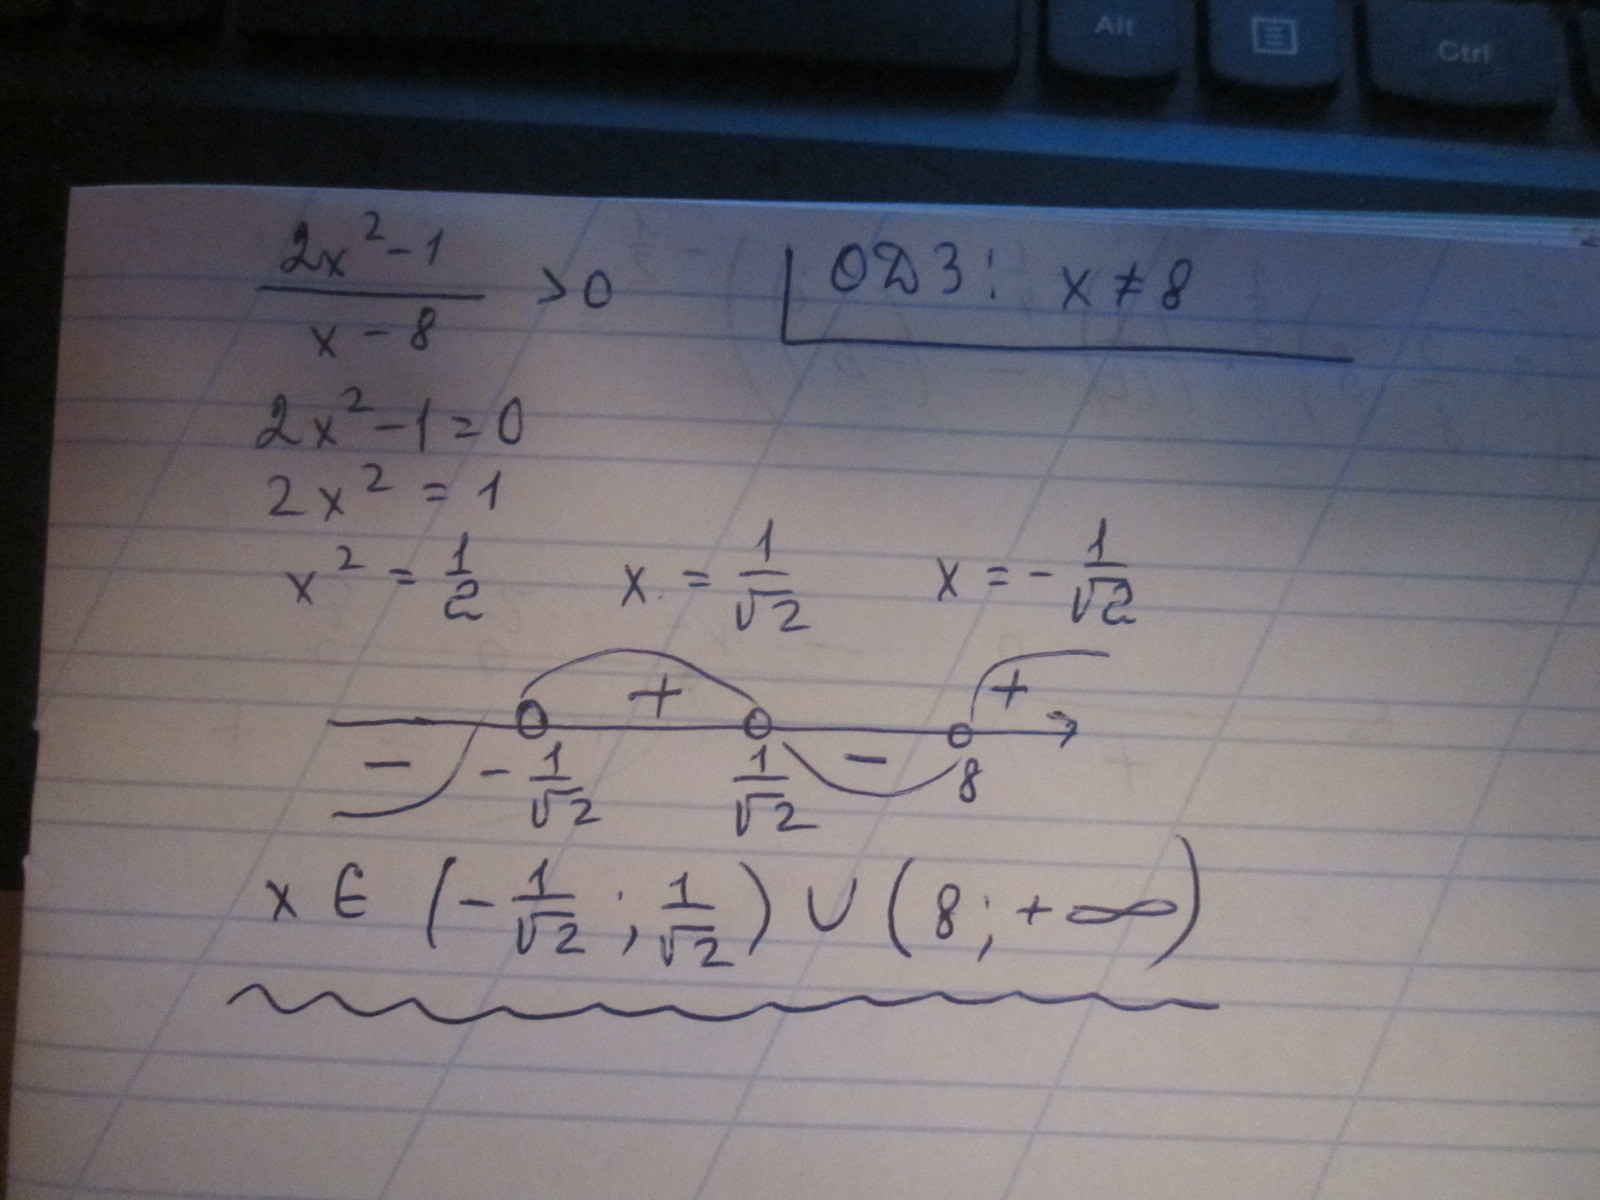 Alt Ctrl
(2x² - 1)/(x - 8) > 0 ОДЗ: x ≠ 8
2x² - 1 = 0
2x² = 1
x² = 1/2 x = 1/√2 x = - 1/√2
+ +
- - 1/√2 1/√2 - 8
x ∈ (- 1/√2 ; 1/√2) ∪ (8; + ∞)